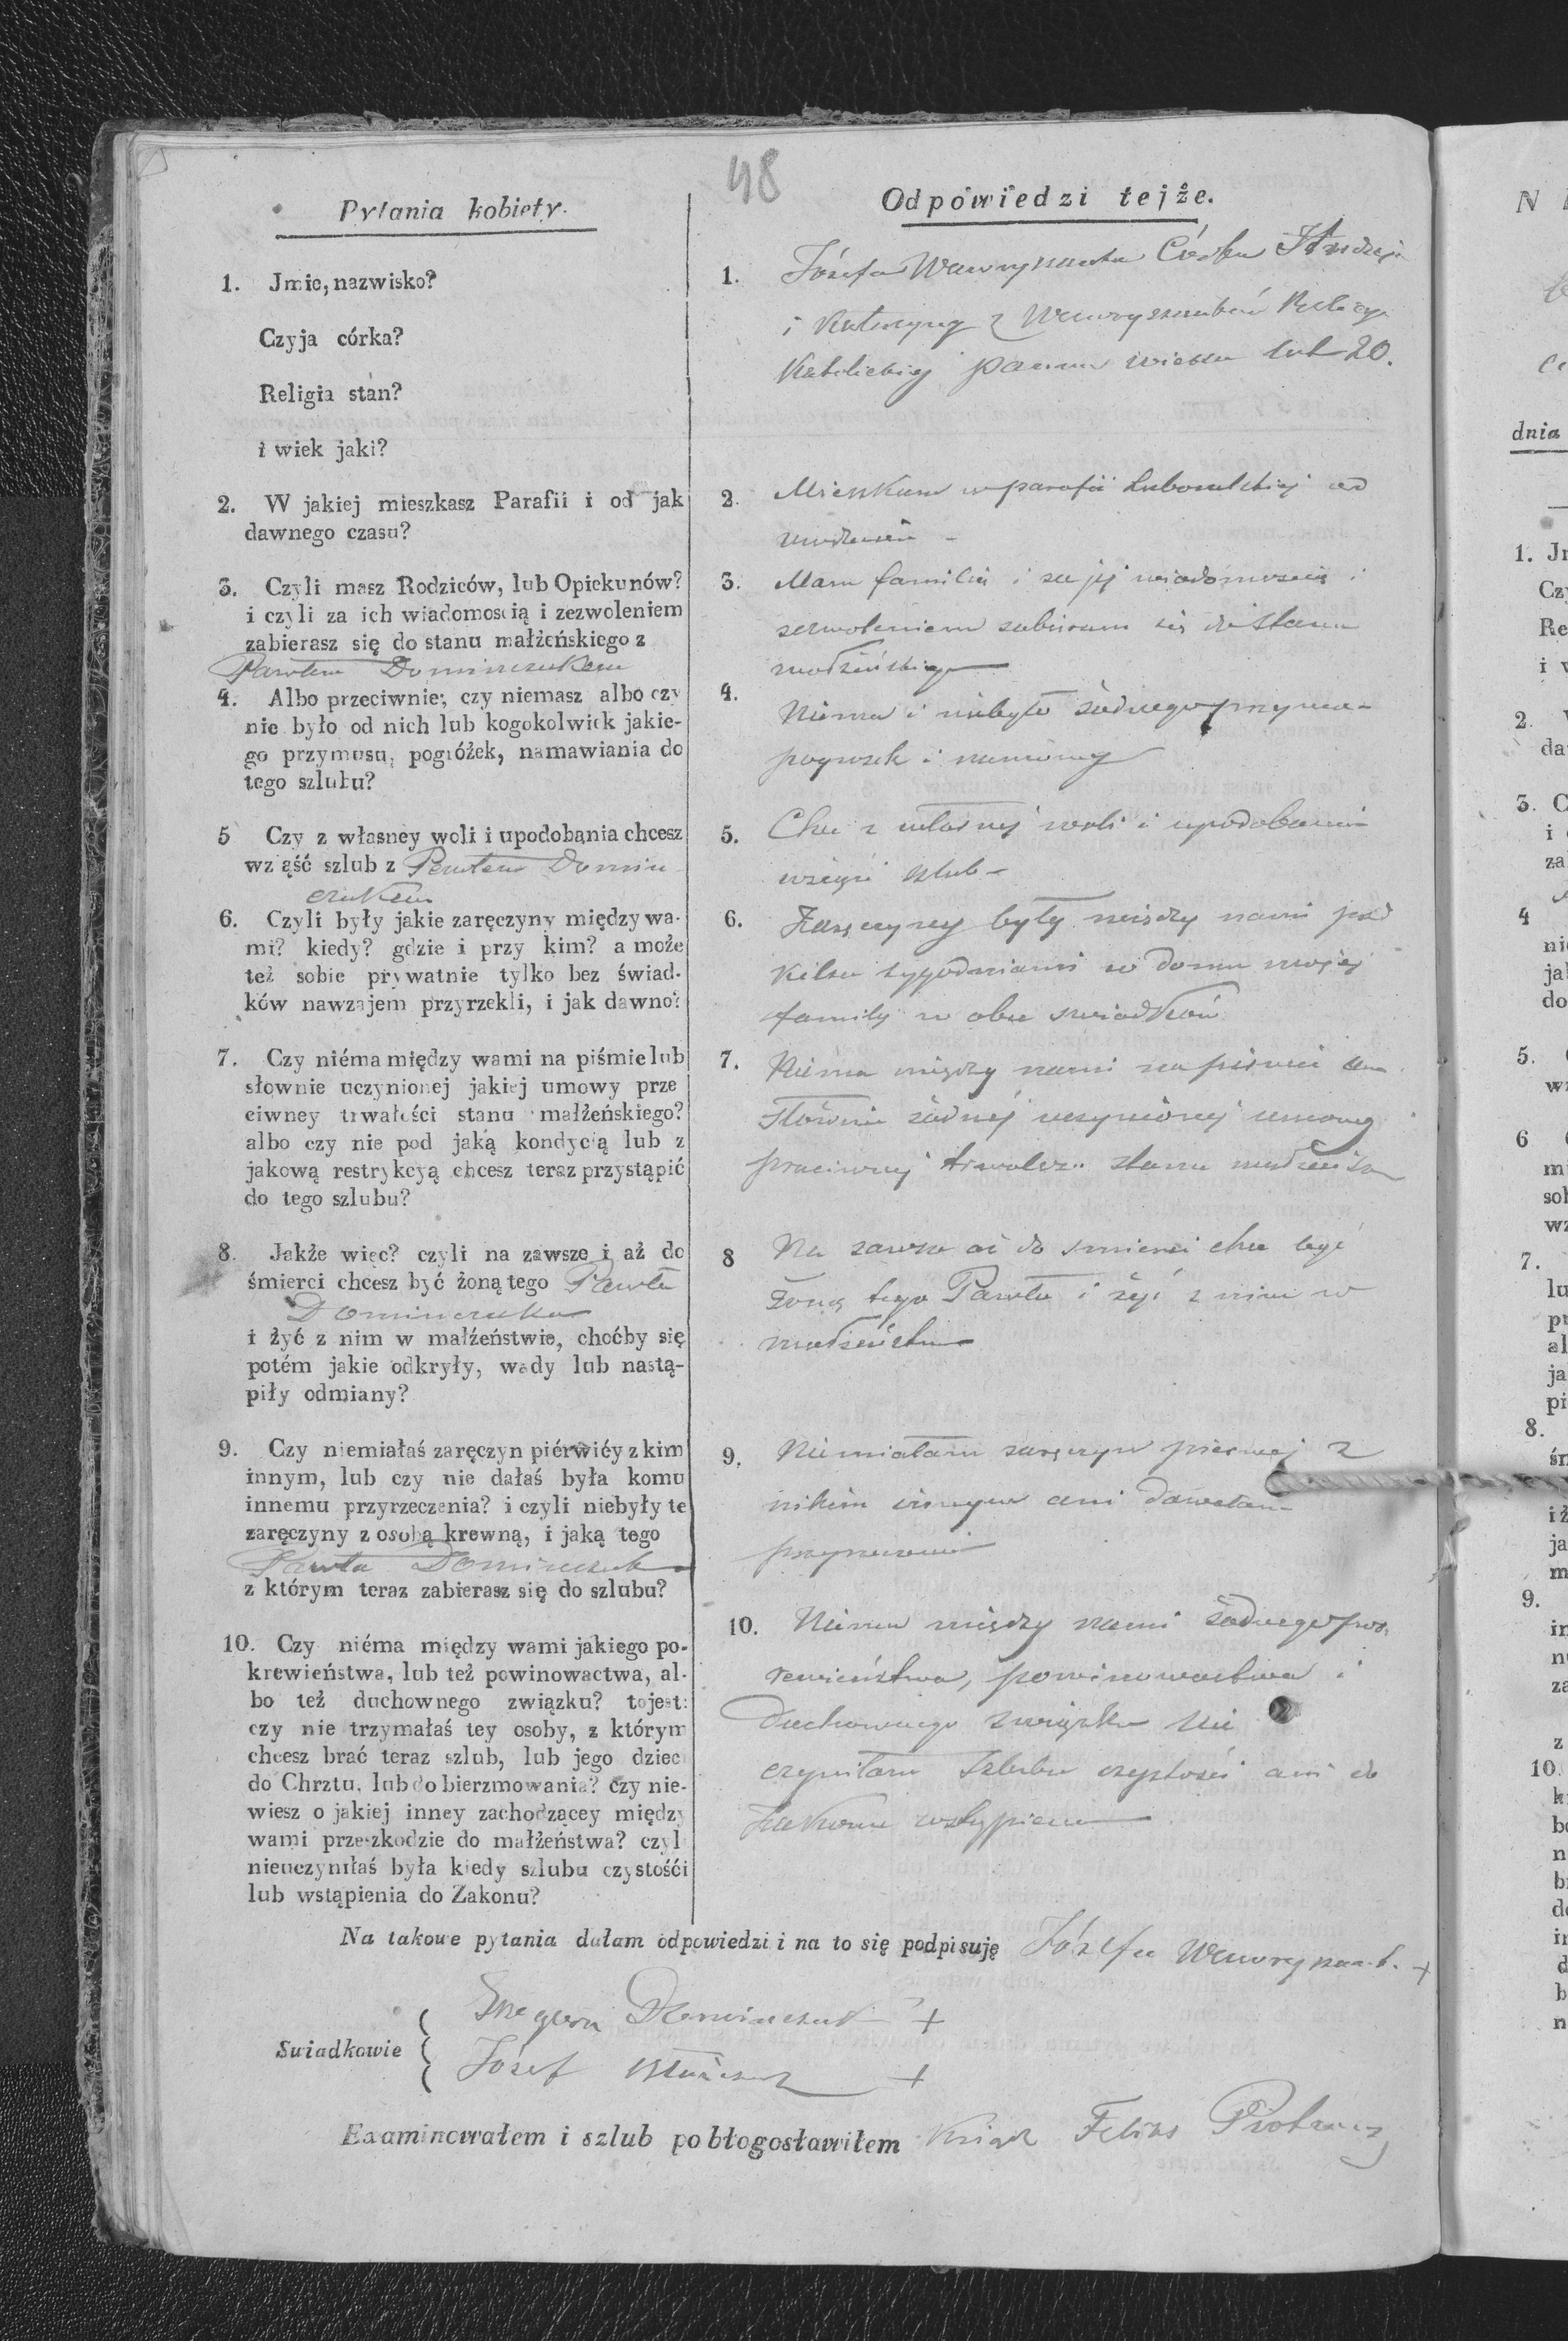 48
Pytania kobiety.
1. Jmie, nazwisko?
Czyja córka?
Religia stan?
i wiek jaki?
2. W jakiej mieszkasz Parafii i od jak
dawnego czasu?
3. Czyli masz Rodziców, lub Opiekunów?
i czyli za ich wiadomością i zezwoleniem
zabierasz się do stanu małżeńskiego z
Pawłem Dominczukem
4. Albo przeciwnie; czy niemasz albo czy
nie było od nich lub kogokolwiek jakie-
go przymusu, pogróżek, namawiania do
tego szlubu?
5 Czy z własney woli i upodobania chcesz
wz ąść szlub z Pawłem Domin
czukem
6. Czyli były jakie zaręczyny między wa-
mi? kiedy? gdzie i przy kim? a może
też sobie prywatnie tylko bez świad-
ków nawzajem przyrzekli, i jak dawno?
7. Czy niéma między wami na piśmie lub
słownie uczynionej jakiej umowy prze
ciwney trwałości stanu małżeńskiego?
albo czy nie pod jaką kondycią lub z
jakową restrykcyą chcesz teraz przystąpić
do tego szlubu?
8. Jakże więc? czyli na zawsze i aż do
śmierci chcesz być żoną tego Pawła
Dominczuka
i żyć z nim w małżeństwie, choćby się
potém jakie odkryły, wady lub nastą-
piły odmiany?
9. Czy niemiałaś zaręczyn piérwiéy z kim
innym, lub czy nie dałaś była komu
innemu przyrzeczenia? i czyli niebyły te
zaręczyny z osobą krewną, i jaką tego
Pawła Dominczuka
z którym teraz zabierasz się do szlubu?
10. Czy niéma między wami jakiego po-
krewieństwa, lub też powinowactwa, al-
bo też duchownego związku? tojest:
czy nie trzymałaś tey osoby, z którym
chcesz brać teraz szlub, lub jego dzieci
do Chrztu, lub do bierzmowania? czy nie-
wiesz o jakiej inney zachodzącey między
wami przeszkodzie do małżeństwa? czyl
nieuczyniłaś była kiedy szlubu czystośći
lub wstąpienia do Zakonu?
Odpowiedzi tejże.
1. Józefa Córka Andrzeja
i Katarzyny z Religyi
Katolickiej panna wieku lat 20.
2. Mieszkam w parafii od
urodzenia
3. Mam familią i za jej wiadomością i
zezwoleniem zabieram się do stanu
małżeńskiego
4. Niema i niebyło żadnego przymu-
pogrozek i namowy
5. Chcę z własnej woli i upodobania
wziąść szlub
6. Zaręczyny były między nami przed
kilku tygodniami w domu mojej
familij w obec swiadków
7. Niema między nami na piśmie ani
słownie żadnej uczynionej umowy
przeciwnej trwałości stanu małżeńs
8 Na zawsze aż do smierci chcę być
żoną tego Pawła i żyć z nim w
małżeństwie
9. Niemiałam zaręczyn pierwej z
nikim innym ani dawałam
przyrzeczenia
10. Niema między nami żadnego po
krewieństwa, powinowactwa i
duchownego związku Nie
czyniłam szlubu czystości ani do
Zakonu wstąpienia
Na takowe pytania dałam odpowiedzi i na to się podpisuję Józefa +
Swiadkowie
Dominczuk +
Józef +
Examinowałem i szlub pobłogosławiłem Ksiądz Felixs
N
dnia
1. Jr
Cz
Re
i w
2.
da
3. C
i
za
4
ni
ja
do
5.
w
6
m
sol
wz
7.
lu
p
al
ja
pi
8.
śn
i ż
ja
m
9.
in
n
za
z
10.
k
b
n
b
d
i
d
b
n